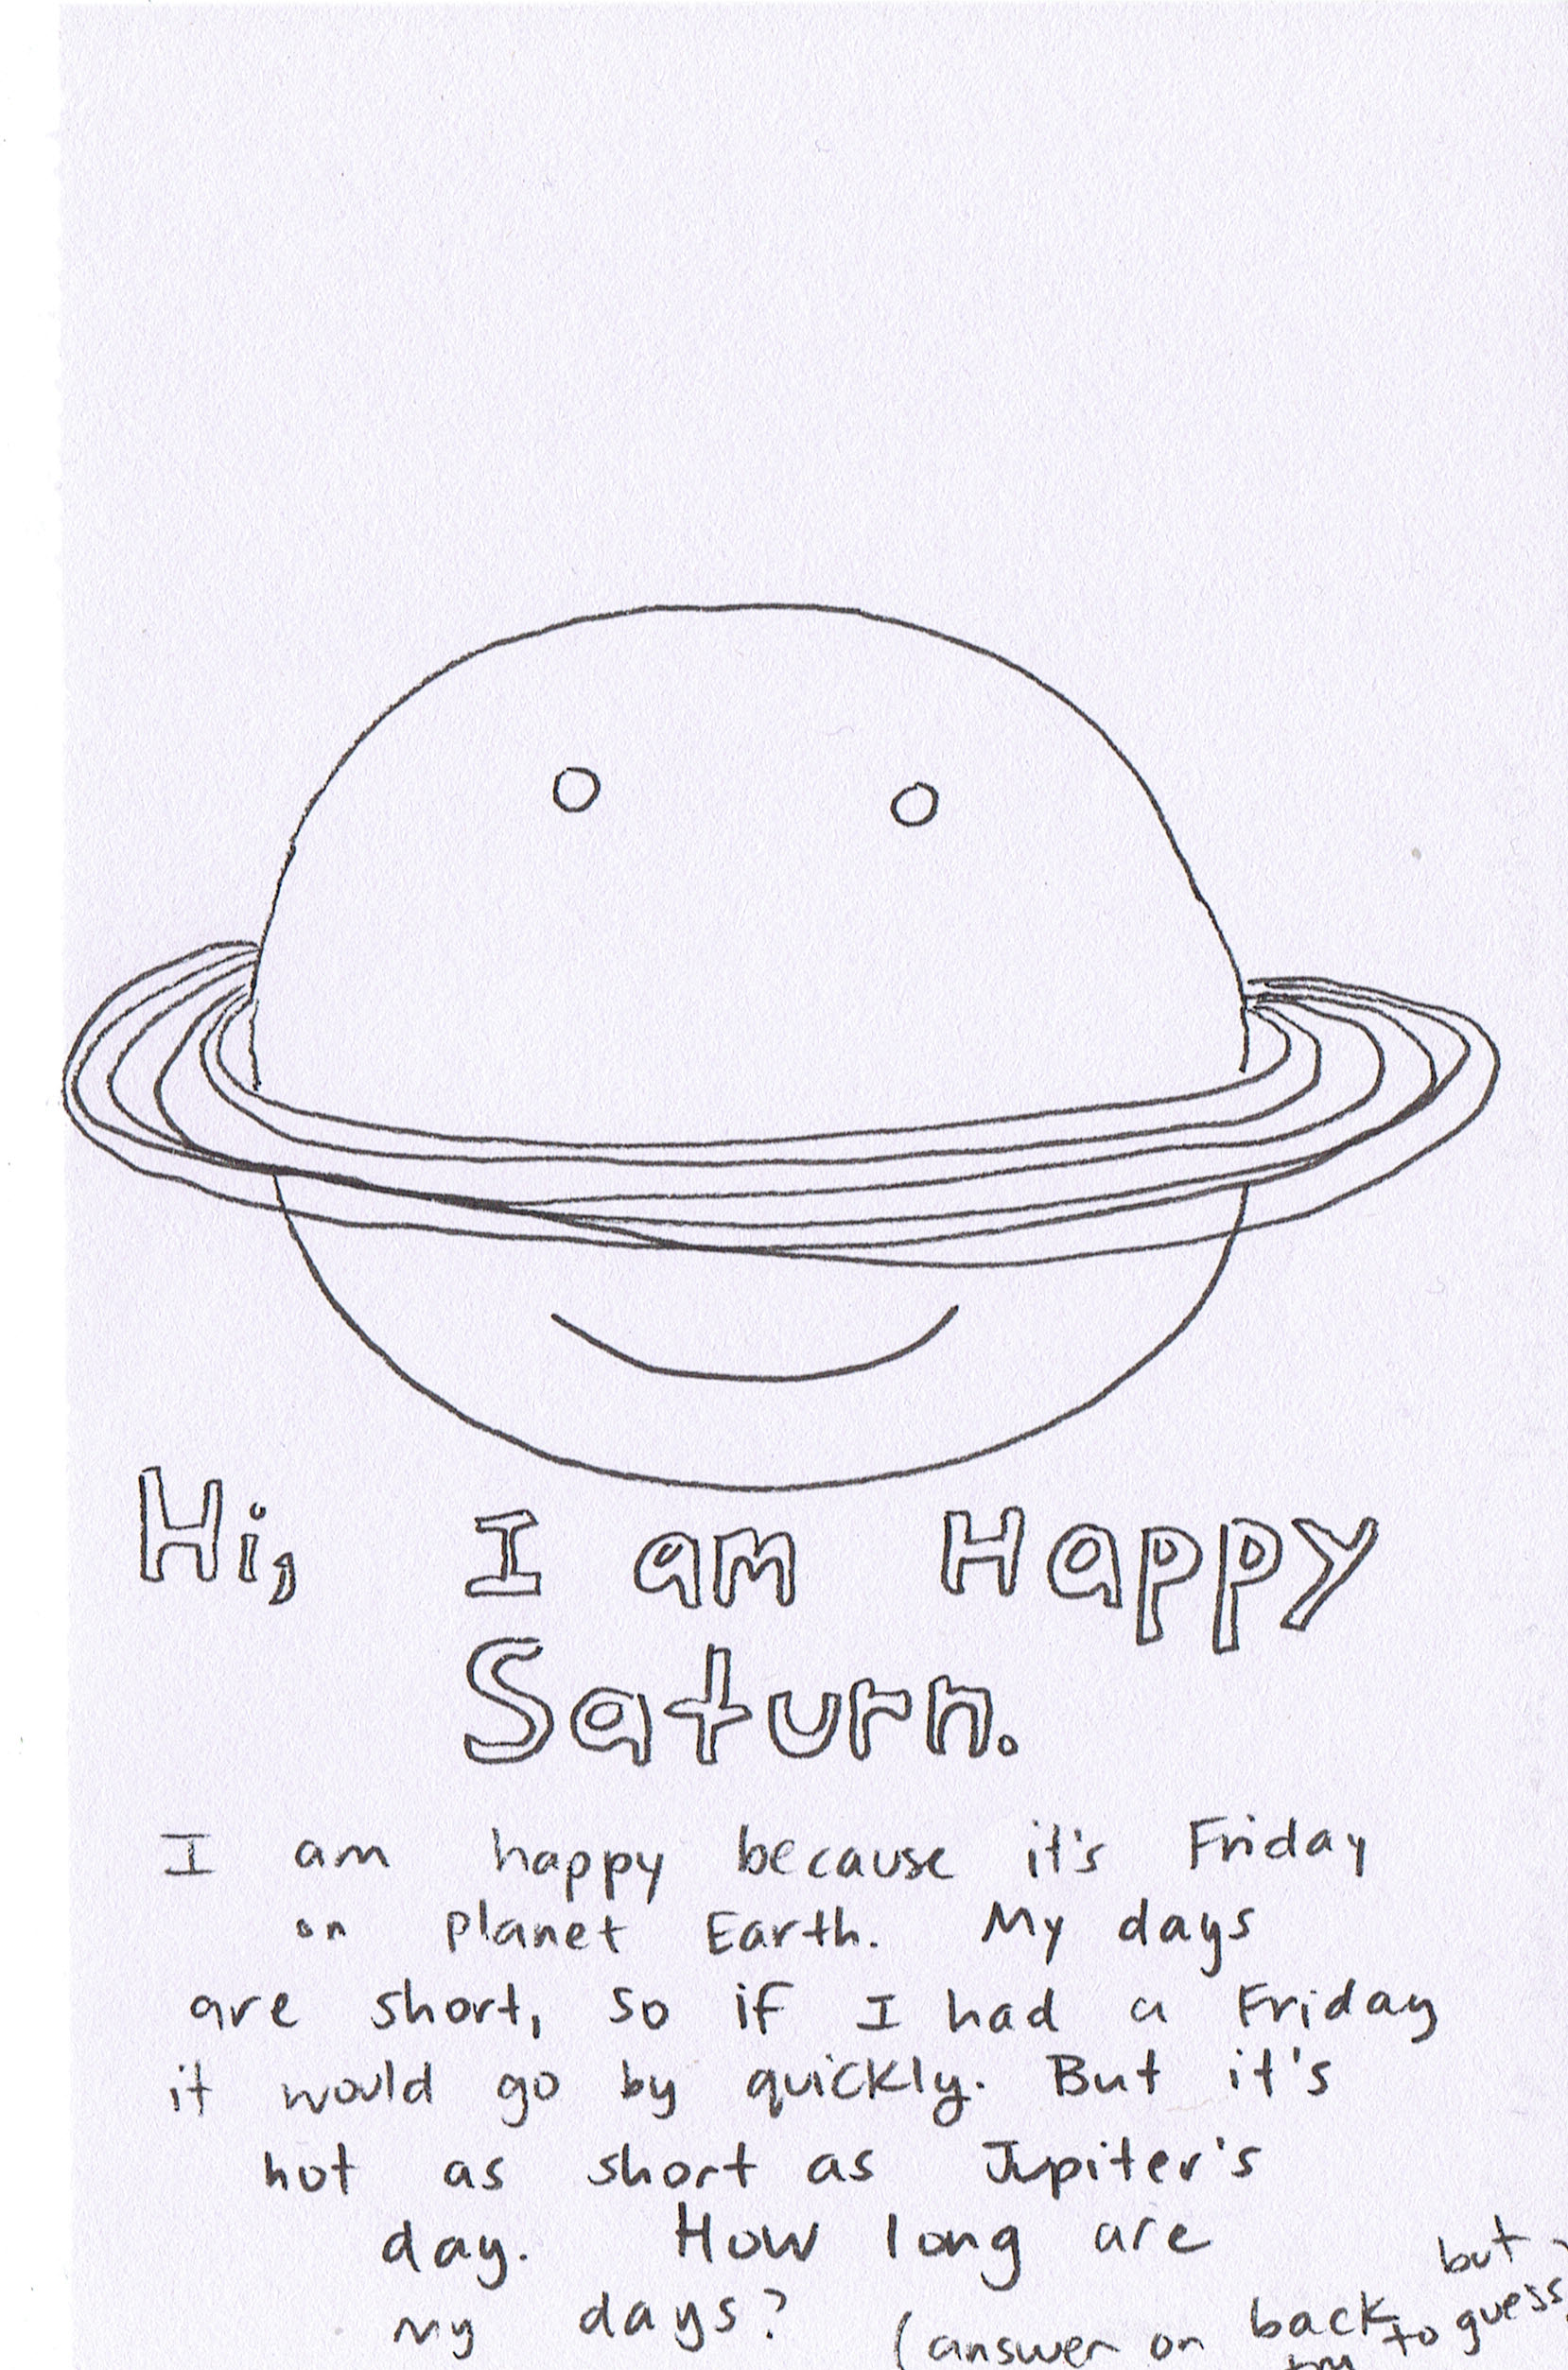 Hi, I am Happy
Saturn.
I am happy because it's Friday
on Planet Earth. My days
are short, so if I had a Friday
it would go by quickly. But it's
not as short as Jupiter's
day. How long are
my days? (answer on back but
try to guess